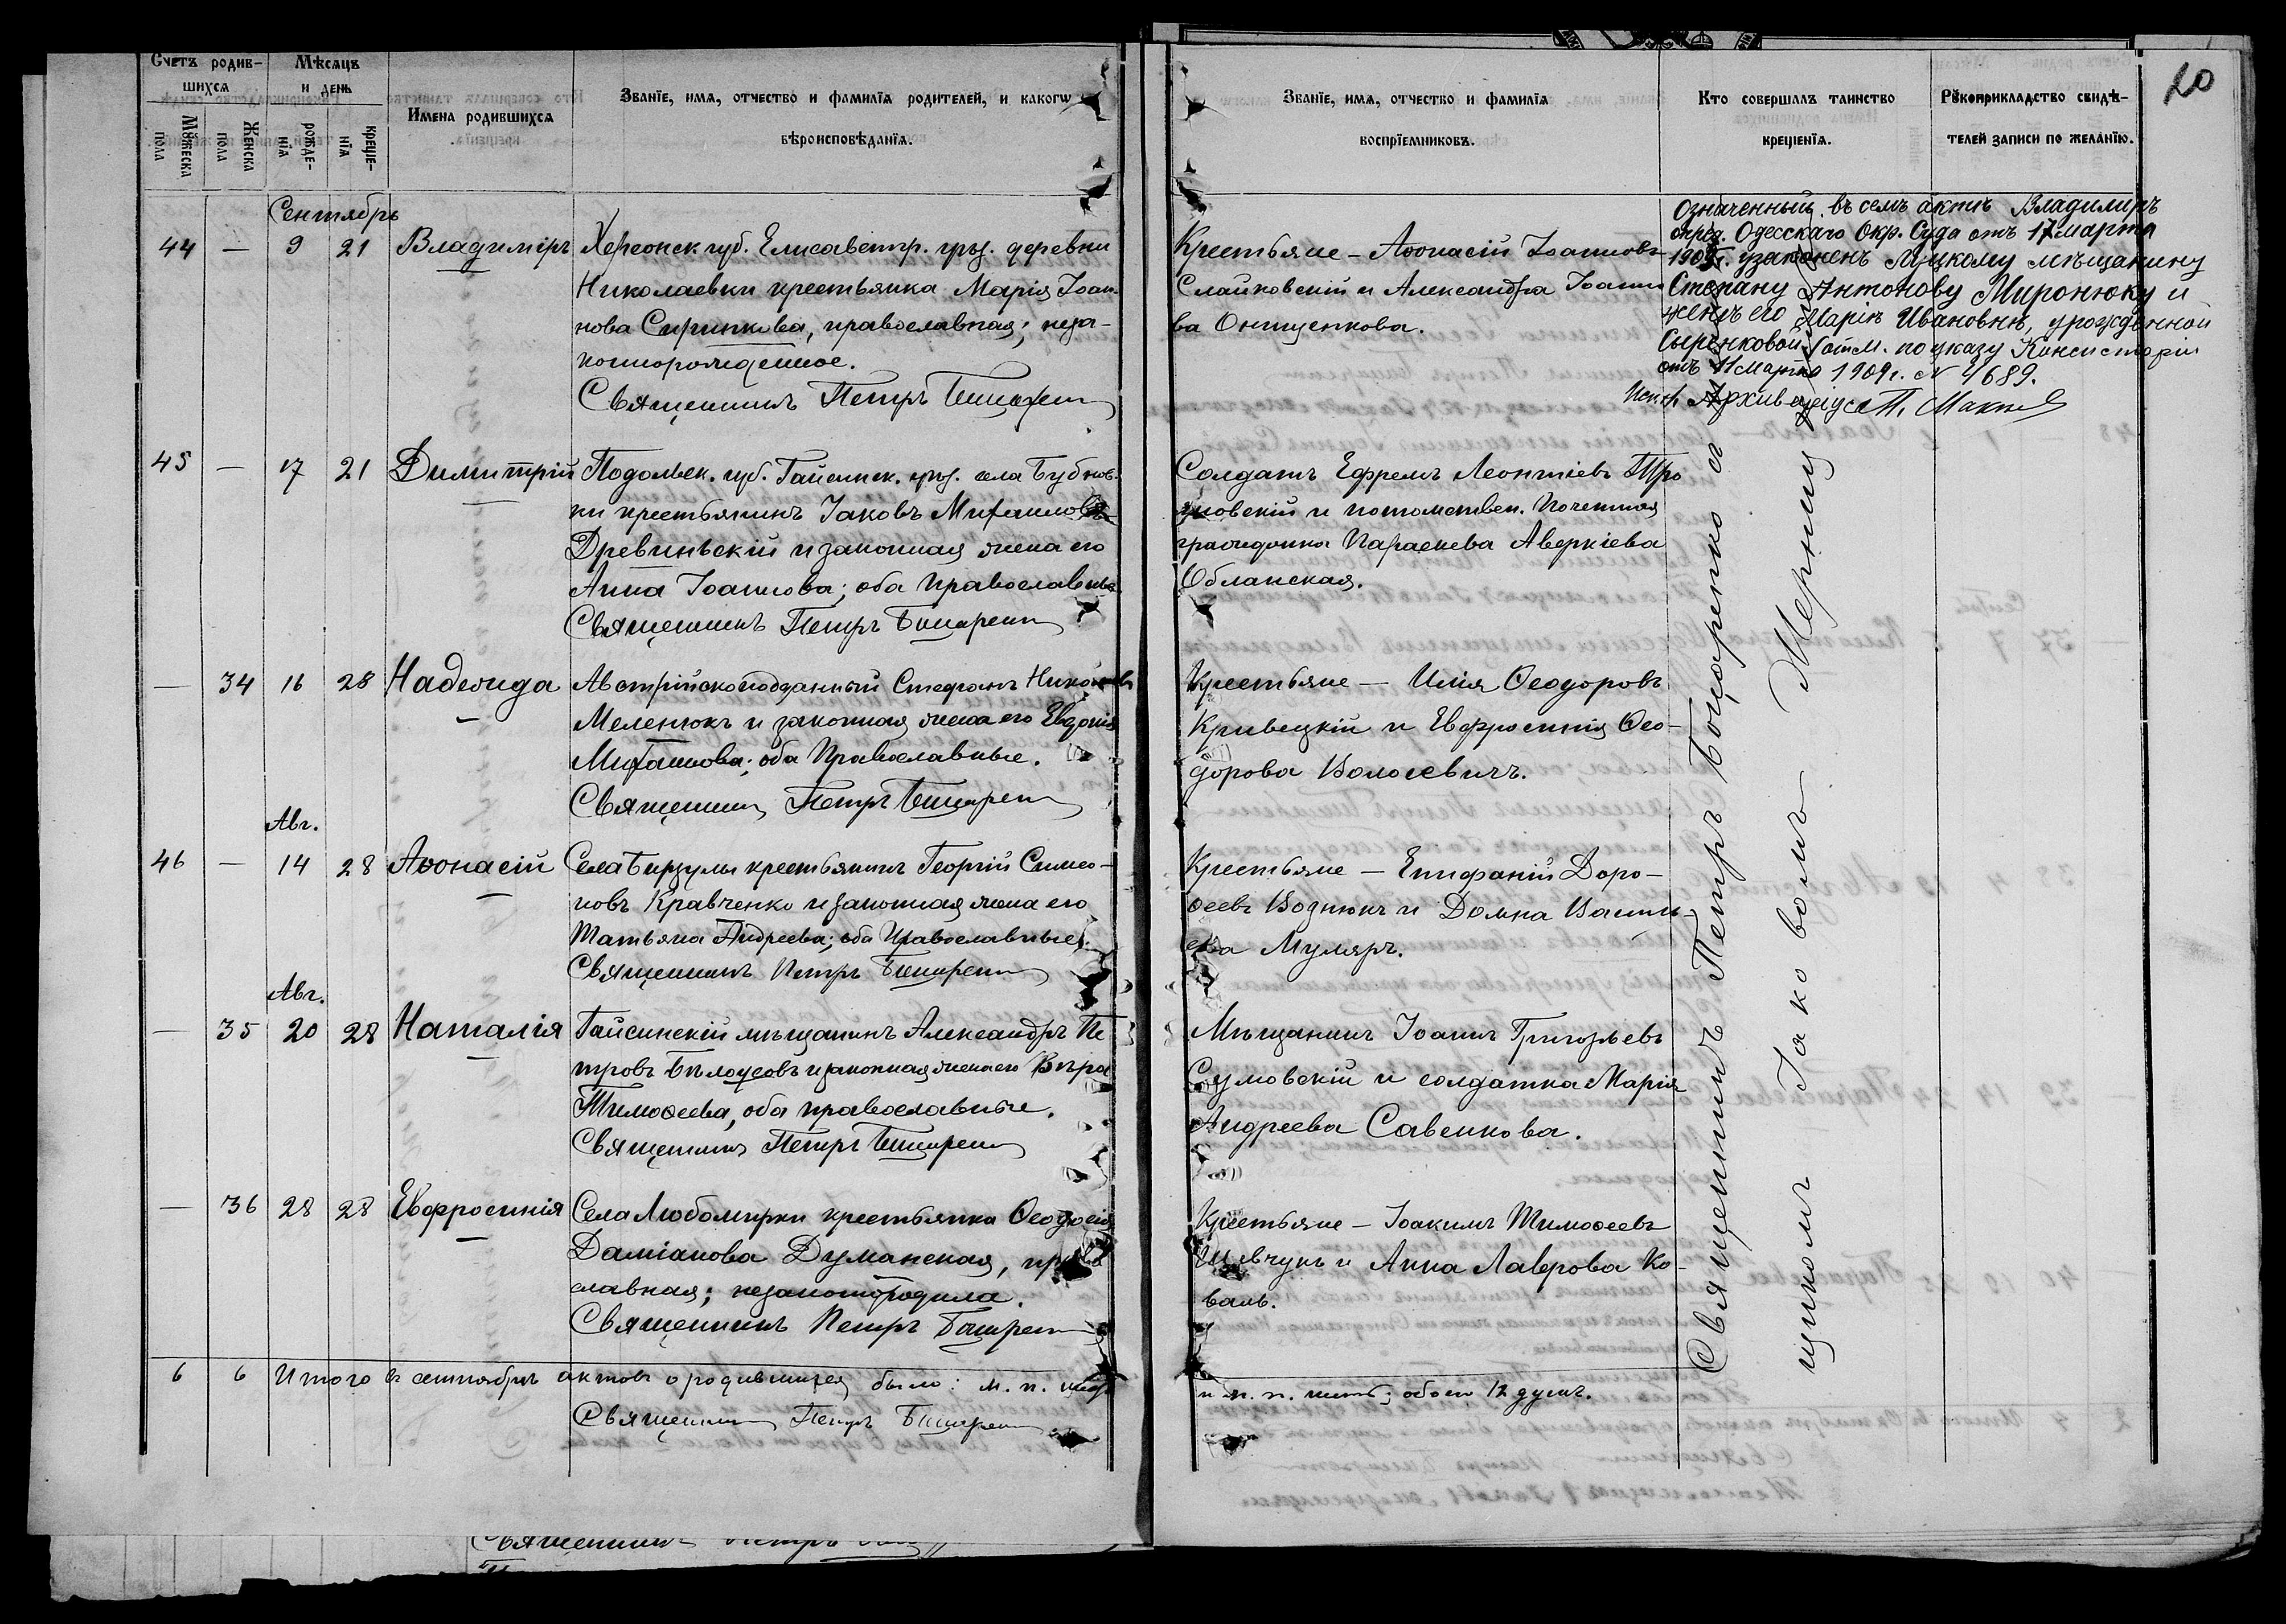 20
Счетъ родив-
шихся
Мѣсяцъ
и день
Мꙋжеска пола
Женска пола
рожде-
нїя
креще-
нїя
Имена родившихся
Званїе, имя, отчество и фамилїя родителей, и какогѡ
вѣроисповѣданїя.
Званїе, имя, отчество и фамилїя
воспрїемниковъ.
Кто совершалъ таинство
крещенїя.
Рꙋкоприкладство свидѣ-
телей записи по желанїю.
Сентябрь
44 — 9 21 Владиміръ
Херсонск. губ. Елисаветгр. уѣз. деревни
Николаевки крестьянка Марія Іоан-
нова Сиринкова, православная; неза-
коннорожденное.
Священникъ Петръ Боцаренко
Крестьяне – Аѳонасій Іоанновъ
Слайковскій и Александра Іоанно
ва Онищенкова.
Означенный въ семъ актѣ Владимиръ
опред. Одесскаго Окр. Суда отъ 17 марта
1909 г. узаконенъ Луцкому мѣщанину
Степану Антонову Миронюку и
женѣ его Маріи Ивановнѣ, урожденной
Сыренковой. отм. по указу Консисторіи
отъ 11 марта 1909 г. № 4689.
Архиваріуса
45 — 17 21 Димитрій
Подольск. губ. Гайсинск. уѣз. села Бубнов-
ки крестьянинъ Іаковъ Михаиловъ
Древинскій и законная жена его
Анна Іоаннова; оба православные
Священникъ Петръ Боцаренко
Солдатъ Ефремъ Леонтіевъ Тро
яновскій и потомствен. почетная
гражданка Параскева Аверкіева
Облапская.
— 34 16 28 Надежда
Австрійскоподданный Стефанъ Николаевъ
Меленюкъ и законная жена его Евдокія
Михаилова; оба Православные.
Священникъ Петръ Боцаренко
Крестьяне — Илія Ѳеодоровъ
Кривецкій и Евфросинія Ѳео-
дорова Волосевичъ.
Авг.
46 — 14 28 Аѳонасій
Села Бирзулы крестьянинъ Георгій Симео-
новъ Кравченко и законная жена его
Татьяна Андреева; оба Православные.
Священникъ Петръ Боцаренко
Крестьяне — Епифаній Доро-
ѳеевъ Вознюкъ и Домна Васильи-
ева Муляръ.
Авг.
— 35 20 28 Наталія
Гайсинскій мѣщанинъ Александръ Пе
тровъ Бѣлоусовъ и законная жена его Вѣра
Тимоѳеева, оба православные.
Священникъ Петръ Боцаренко
Мѣщанинъ Іоаннъ Григорьевъ
Сумовскій и солдатка Марія
Андреева Савенкова.
— 36 28 28 Евфросинія
Села Любомирки крестьянка Ѳеодосія
Даміанова Думанская, право
славная; незаконнородила.
Священникъ Петръ Боцаренко
Крестьяне – Іоакимъ Тимоѳеевъ
Шевчукъ и Анна Лаврова Ко-
валь.
Священникъ Петръ Боцаренко съ
Іаковомъ Мерину
щикомъ
6 6 Итого въ сентябрѣ актовъ о родившихся было: м. п. шесть
и ж. п. шесть; обоего 12 душъ.
Священникъ Петръ Боцаренко
Священникъ Петръ